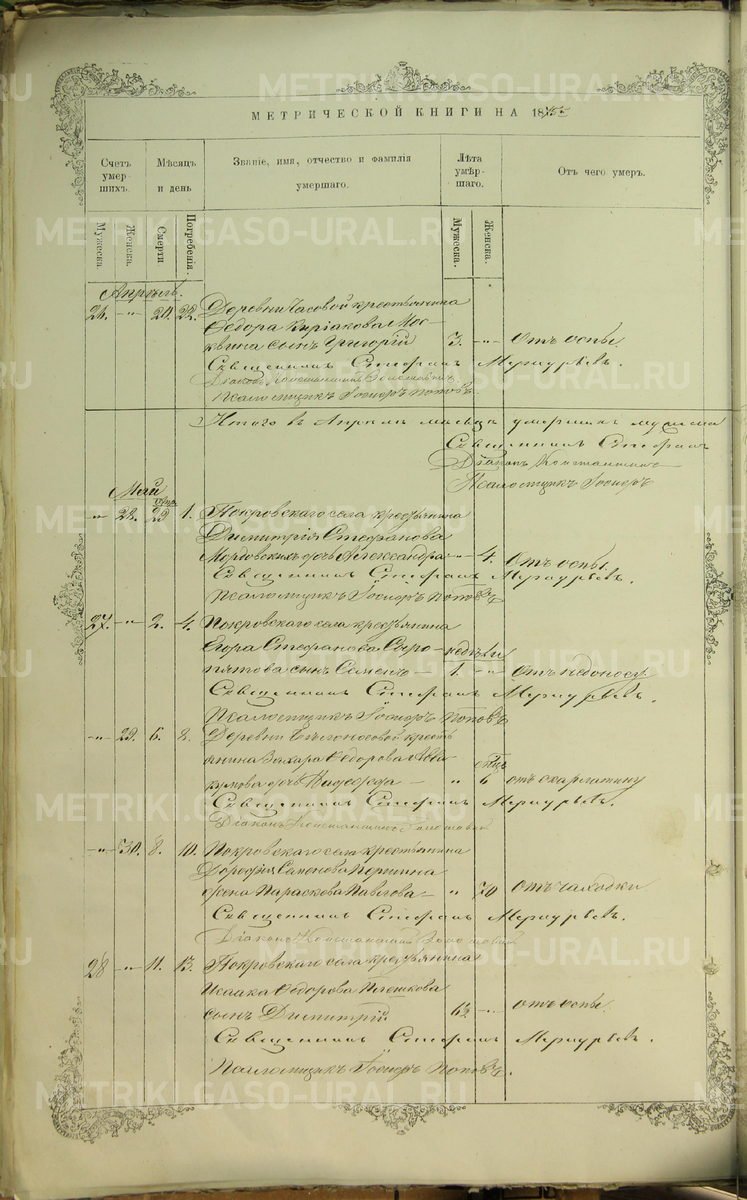 МЕТРИЧЕСКОЙ КНИГИ НА 18
Счетъ умершихъ.
Мѣсяцъ и день
Званіе, имя, отчество и фамилія умершаго.
Лѣта умершаго.
Отъ чего умеръ.
Мужеска.
Женска.
Смерти
Погребенія.
Мужеска.
Женска.
Апрѣль.
26. -"- 20. 22. Деревни Часовой крестьянина
Ѳедора Киріакова Мос-
квина сынъ Григорій 3. -"- Отъ оспы.
Священникъ Стефанъ Меркурьевъ.
Діаконъ Константинъ
Псаломщикъ Іосифъ Поповъ.
Итого въ Апрѣлѣ мѣсяцѣ умершихъ мужеска
Священникъ Стефанъ
Діаконъ Константинъ
Псаломщикъ Іосифъ
Май
-"- 28. 29 1. Покровскаго села крестьянина
Димитрія Стефанова
Мордовскихъ дочь Александра -"- 4. Отъ оспы.
Священникъ Стефанъ Меркурьевъ.
Псаломщикъ Іосифъ Поповъ
27. -"- 2. 4. Покровскаго села крестьянина
Егора Стефанова Сыро- недѣли
пятова сынъ Семенъ - 1. -"- Отъ недоноск.
Священникъ Стефанъ Меркурьевъ.
Псаломщикъ Іосифъ Поповъ
-"- 29. 6. 8. Деревни Бѣлоносовой кресть
янина Захара Ѳедорова Авва
кумова дочь Надежда - " 6 отъ скарлатину
Священникъ Стефанъ Меркурьевъ.
Діаконъ Константинъ
-"- 30. 8. 10. Покровскаго села крестьянина
Дорофея Семенова Першина
жена Параскова Павлова - " 70 Отъ чаходки
Священникъ Стефанъ Меркурьевъ.
Діаконъ Константинъ
28 -"- 11. 13. Покровскаго села крестьянина
Исаака Ѳедорова Плешкова
сынъ Димитрій -"- отъ оспы.
Священникъ Стефанъ Меркурьевъ.
Псаломщикъ Іосифъ Поповъ.
METRIKI.GASO-URAL.RU